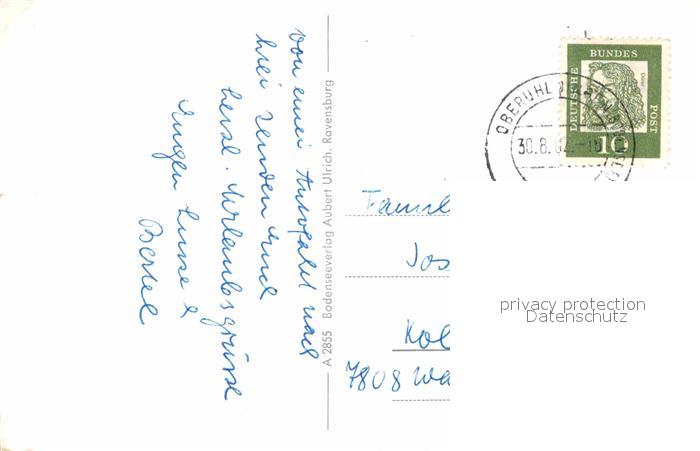 von einer Ausfahrt nach
hier senden Euch
herzl. Urlaubsgrüsse
Eugen Luise &
Bertel
A 2855 Bodenseeverlag Aubert Ulrich, Ravensburg
DEUTSCHE
BUNDES
POST
Dürer
10
OBERUHL
30.8.62.-1
Famil
Jos
Kol
7808 Wa
privacy protection
Datenschutz